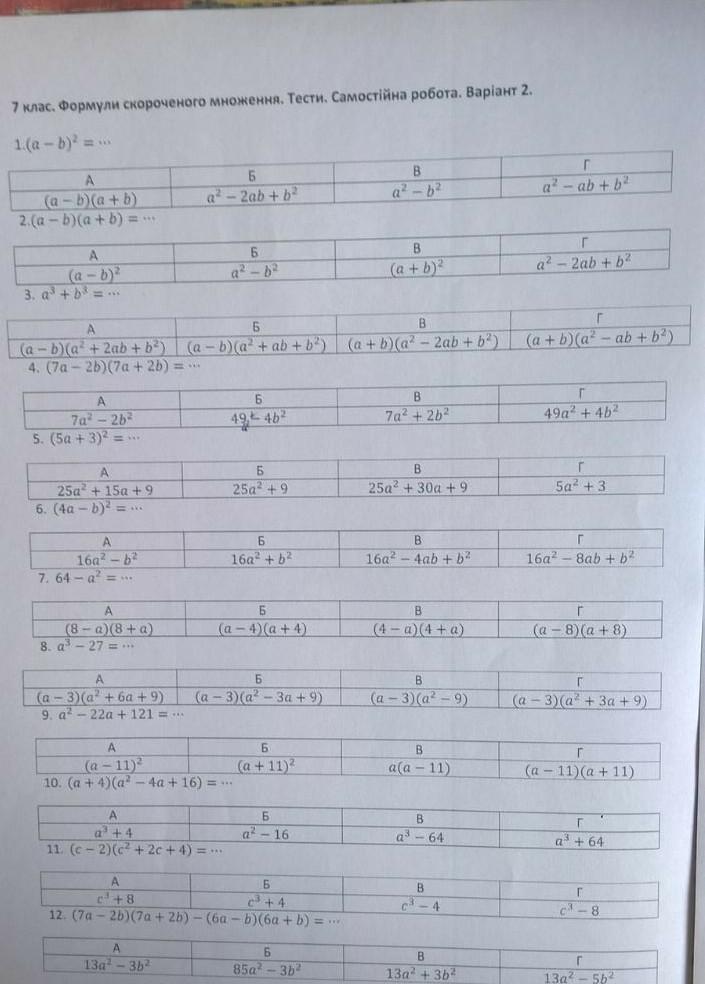 7 клас. Формули скороченого множення. Тести. Самостійна робота. Варіант 2.
1.(a − b)² = ⋯
А Б В Г
(a − b)(a + b) a² − 2ab + b² a² − b² a² − ab + b²
2.(a − b)(a + b) = ⋯
А Б В Г
(a − b)² a² − b² (a + b)² a² − 2ab + b²
3. a³ + b³ = ⋯
А Б В Г
(a − b)(a² + 2ab + b²) (a − b)(a² + ab + b²) (a + b)(a² − 2ab + b²) (a + b)(a² − ab + b²)
4. (7a − 2b)(7a + 2b) = ⋯
А Б В Г
7a² − 2b² 49a² − 4b² 7a² + 2b² 49a² + 4b²
5. (5a + 3)² = ⋯
А Б В Г
25a² + 15a + 9 25a² + 9 25a² + 30a + 9 5a² + 3
6. (4a − b)² = ⋯
А Б В Г
16a² − b² 16a² + b² 16a² − 4ab + b² 16a² − 8ab + b²
7. 64 − a² = ⋯
А Б В Г
(8 − a)(8 + a) (a − 4)(a + 4) (4 − a)(4 + a) (a − 8)(a + 8)
8. a³ − 27 = ⋯
А Б В Г
(a − 3)(a² + 6a + 9) (a − 3)(a² − 3a + 9) (a − 3)(a² − 9) (a − 3)(a² + 3a + 9)
9. a² − 22a + 121 = ⋯
А Б В Г
(a − 11)² (a + 11)² a(a − 11) (a − 11)(a + 11)
10. (a + 4)(a² − 4a + 16) = ⋯
А Б В Г
a³ + 4 a² − 16 a³ − 64 a³ + 64
11. (c − 2)(c² + 2c + 4) = ⋯
А Б В Г
c³ + 8 c³ + 4 c³ − 4 c³ − 8
12. (7a − 2b)(7a + 2b) − (6a − b)(6a + b) = ⋯
А Б В Г
13a² − 3b² 85a² − 3b² 13a² + 3b² 13a² − 5b²